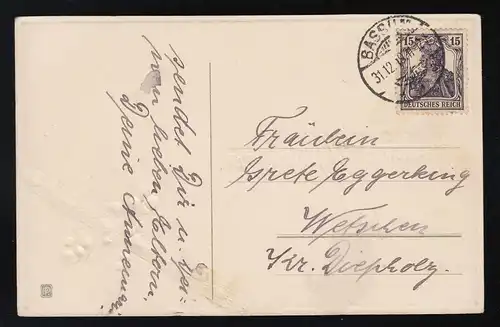 sendet Dir u. Dei-
nen lieben Eltern
Deine
BASSUM
31.12.
15 15
DEUTSCHES REICH
Fräulein
Grete Eggerking
Wetschen
Kr. Diepholz.